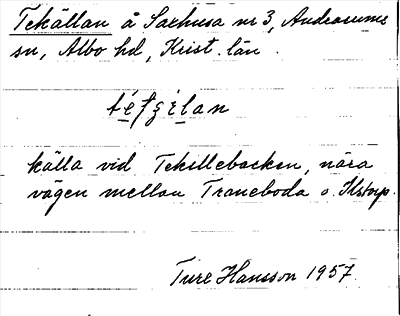 Tekällan å Saxhusa nr 3, Andrarums
sn, Albo hd, Krist. län.
källa vid Tekillebacken, nära
vägen mellan Traneboda o. Ilstorp.
Ture Hansson 1957.